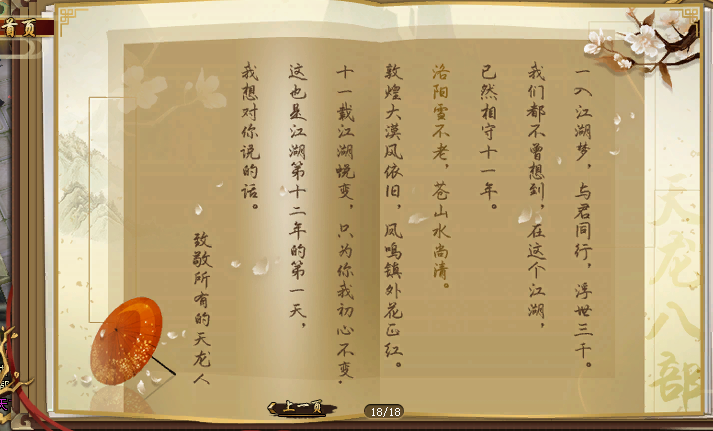 首页
一入江湖梦，与君同行，浮世三千。
我们都不曾想到，在这个江湖，
已然相守十一年。
洛阳雪不老，苍山水尚清。
敦煌大漠风依旧，凤鸣镇外花正红。
十一载江湖蜕变，只为你我初心不变.
这也是江湖第十二年的第一天，
我想对你说的话。
致敬所有的天龙人
天龙八部
上一页
18/18